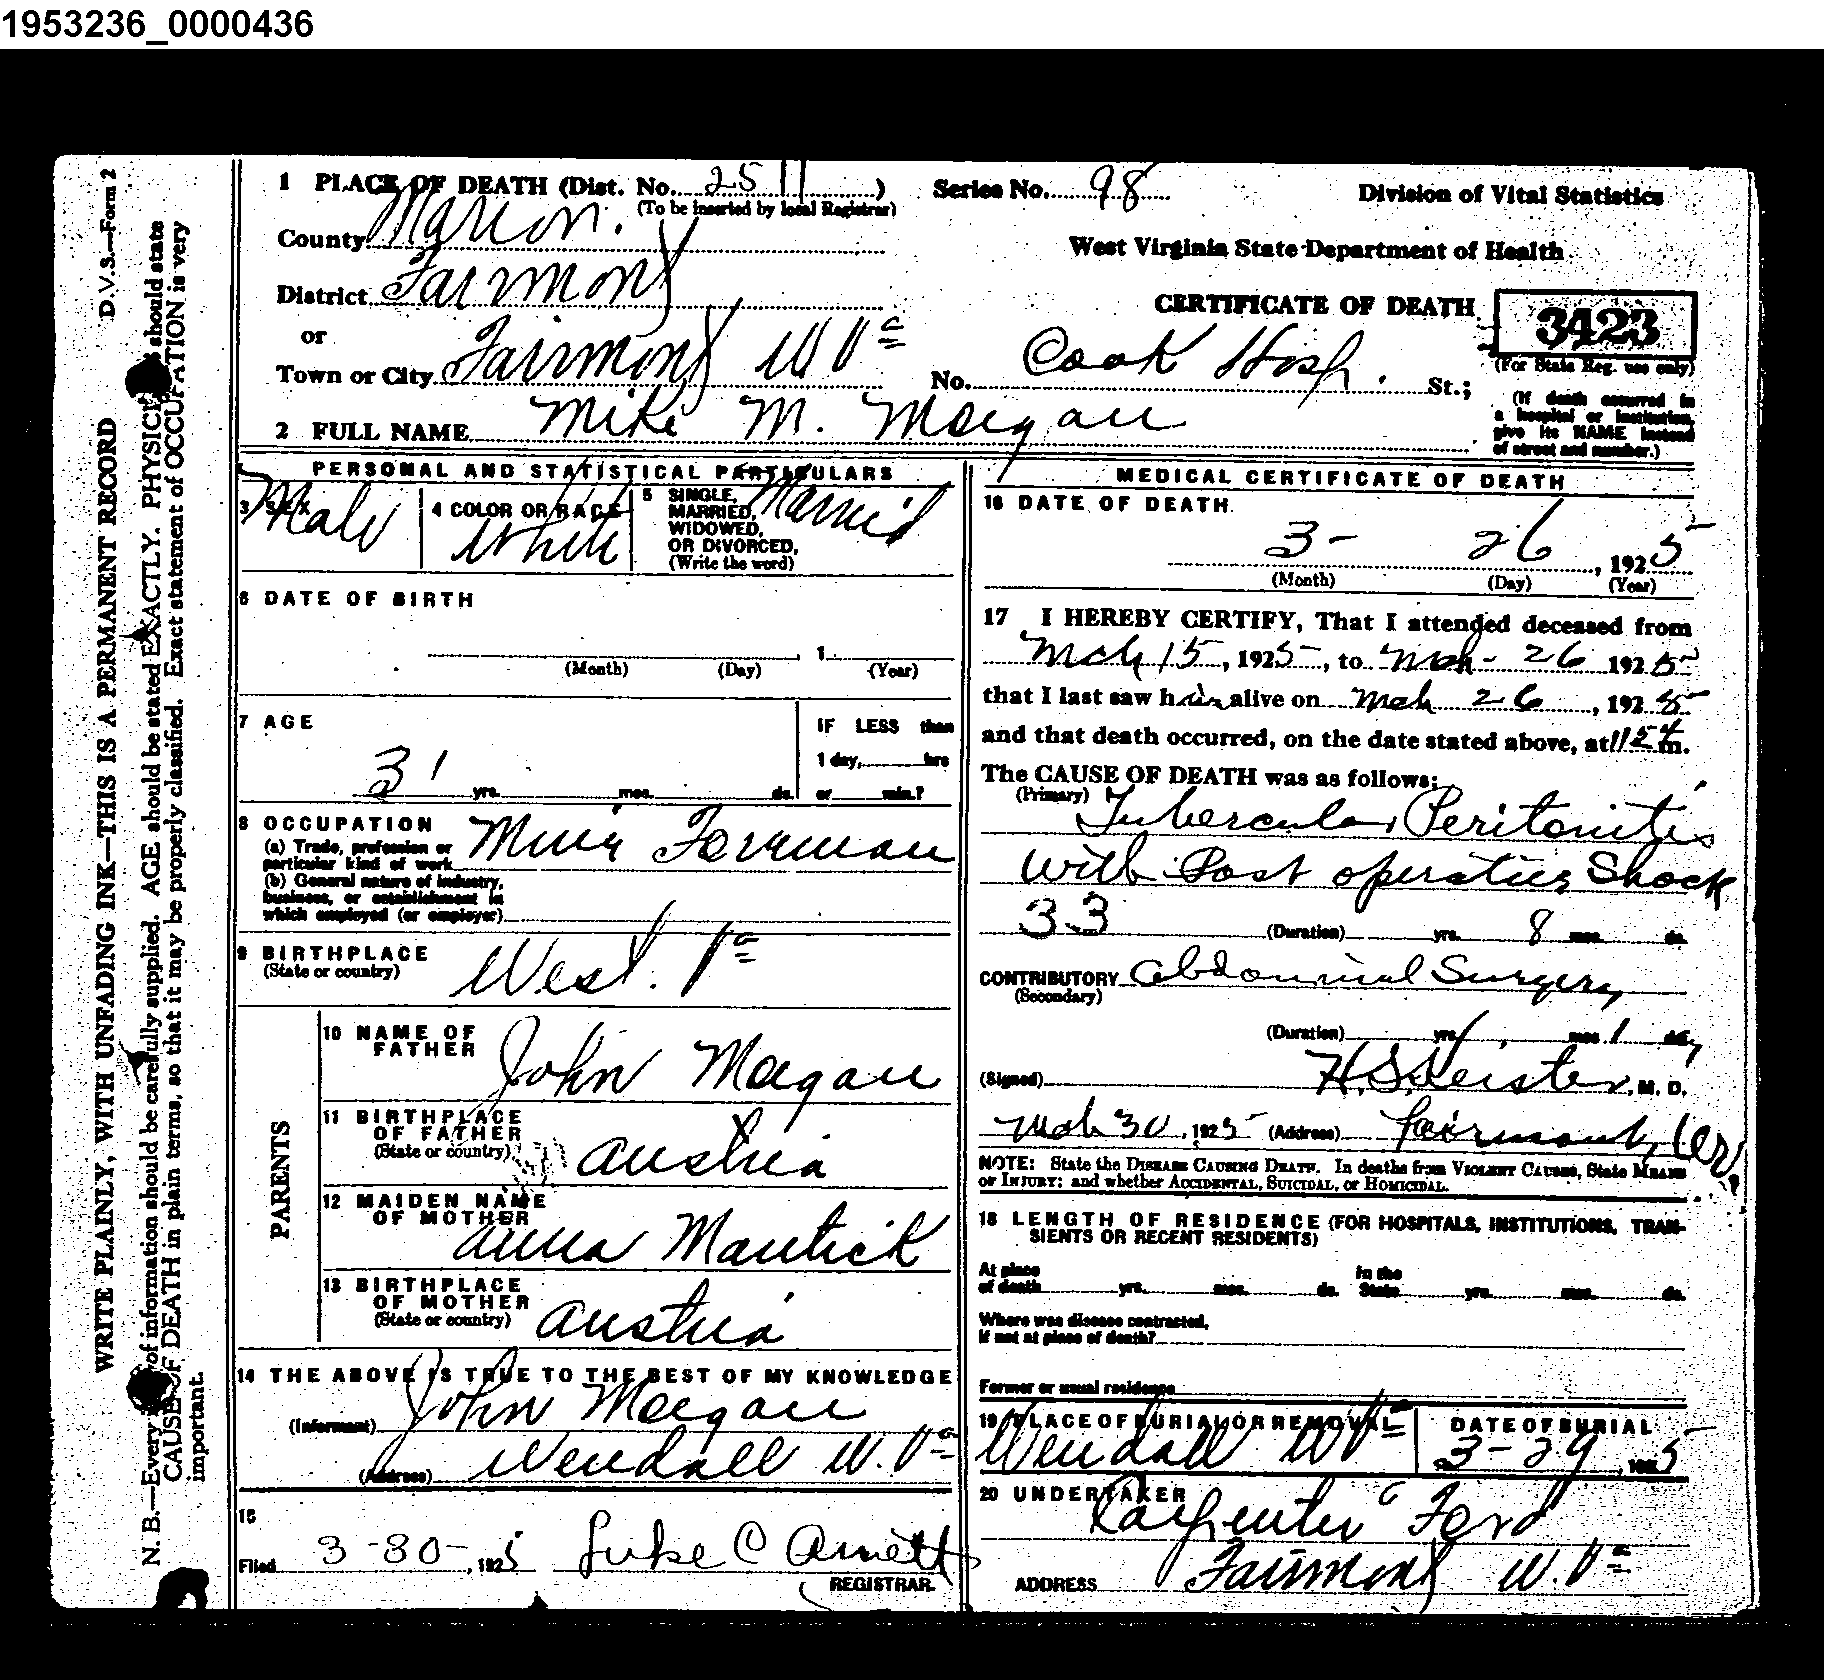 1953236_0000436
1 PLACE OF DEATH (Dist. No. 2511 )
(To be inserted by local Registrar)
Series No. 98
Division of Vital Statistics
County Marion.
West Virginia State Department of Health
District Fairmont
CERTIFICATE OF DEATH
3423
(For State Reg. use only)
or
Town or City Fairmont W Va
No. Cook Hosp. St.;
(If death occurred in
a hospital or institution,
give its NAME instead
of street and number.)
2 FULL NAME Mike M. Morgan
PERSONAL AND STATISTICAL PARTICULARS
3 SEX Male
4 COLOR OR RACE White
5 SINGLE,
MARRIED,
WIDOWED,
OR DIVORCED,
(Write the word)
Married
6 DATE OF BIRTH
, 1
(Month) (Day) (Year)
7 AGE
31 yrs. mos. ds.
IF LESS than
1 day, hrs
or min.?
8 OCCUPATION
(a) Trade, profession or
particular kind of work
Mine Foreman
(b) General nature of industry,
business, or establishment in
which employed (or employer)
9 BIRTHPLACE
(State or country)
West. Va
PARENTS
10 NAME OF
FATHER
John Morgan
11 BIRTHPLACE
OF FATHER
(State or country)
Austria
12 MAIDEN NAME
OF MOTHER
Anna Mautick
13 BIRTHPLACE
OF MOTHER
(State or country)
Austria
14 THE ABOVE IS TRUE TO THE BEST OF MY KNOWLEDGE
(Informant) John Morgan
(Address) Wendall W. Va
15
Filed 3-30-, 1925 Luke C Arnett
REGISTRAR.
MEDICAL CERTIFICATE OF DEATH
16 DATE OF DEATH
3- 26, 1925
(Month) (Day) (Year)
17 I HEREBY CERTIFY, That I attended deceased from
Mch 15, 1925, to Mch- 26 1925
that I last saw him alive on Mch 26, 1925
and that death occurred, on the date stated above, at m.
The CAUSE OF DEATH was as follows:
(Primary)
Tubercular Peritonitis
with Post operative Shock
33 (Duration) yrs. 8 mos. ds.
CONTRIBUTORY Abdominal Surgery
(Secondary)
(Duration) yrs. mos. 1 day
(Signed) H.S. Keister, M. D.
Mch 30, 1925 (Address) Fairmont,
NOTE: State the DISEASE CAUSING DEATH. In deaths from VIOLENT CAUSES, State MEANS
OF INJURY; and whether ACCIDENTAL, SUICIDAL, or HOMICIDAL.
18 LENGTH OF RESIDENCE (FOR HOSPITALS, INSTITUTIONS, TRAN-
SIENTS OR RECENT RESIDENTS)
At place
of death yrs. mos. ds.
In the
State yrs. mos. ds.
Where was disease contracted,
if not at place of death?
Former or usual residence
19 PLACE OF BURIAL OR REMOVAL
Wendall W Va
DATE OF BURIAL
3-29, 1925
20 UNDERTAKER
Carpenter & Ford
ADDRESS Fairmont W. Va
D.V.S.—Form 2
WRITE PLAINLY, WITH UNFADING INK—THIS IS A PERMANENT RECORD
N. B.—Every of information should be carefully supplied. AGE should be stated EXACTLY. PHYSICI should state
CAUSE OF DEATH in plain terms, so that it may be properly classified. Exact statement of OCCUPATION is very
important.